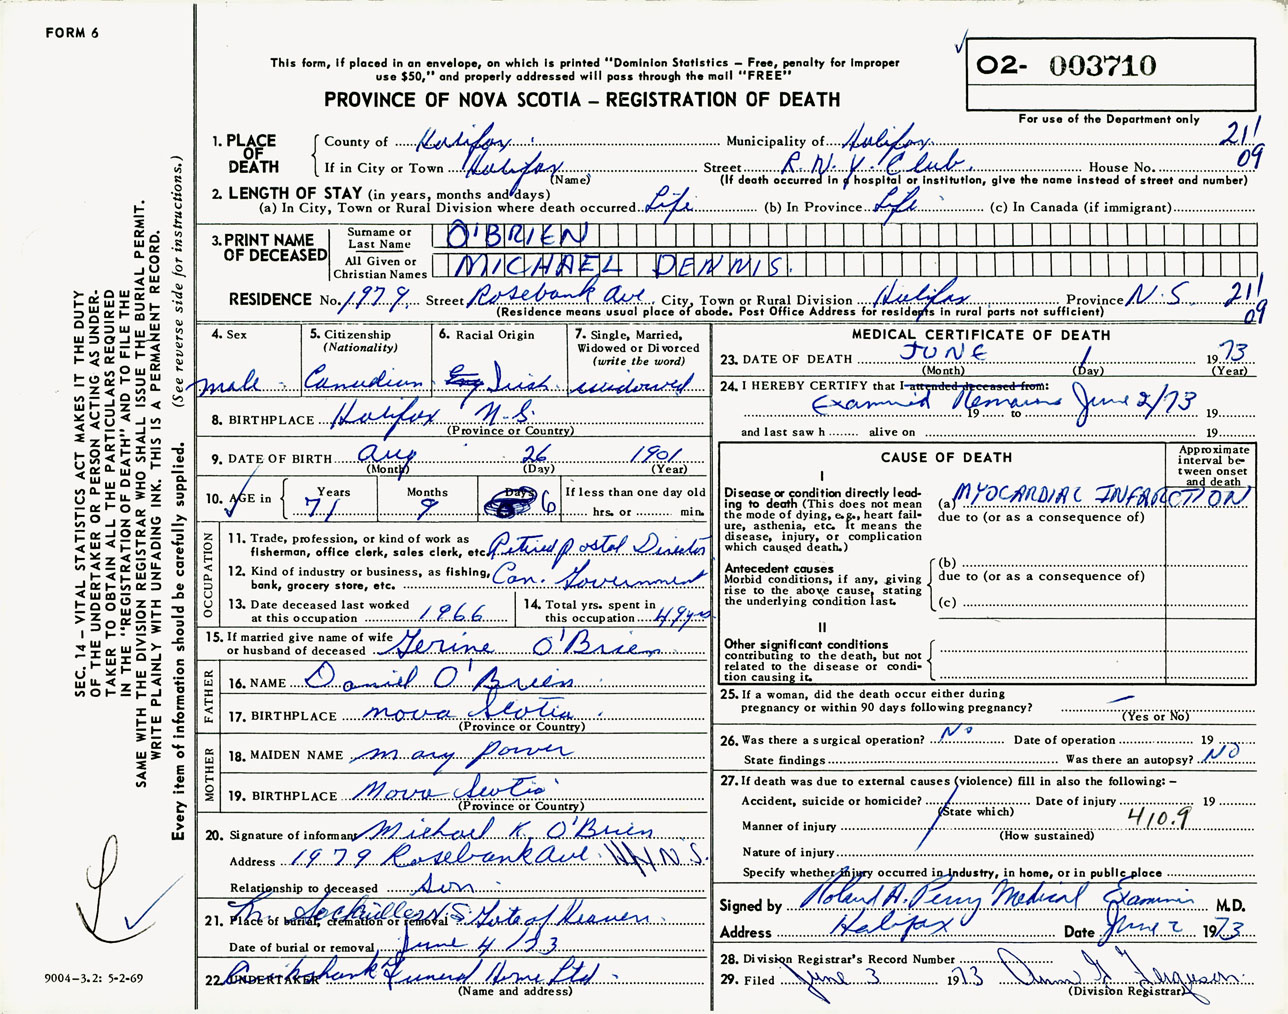 FORM 6
This form, if placed in an envelope, on which is printed "Dominion Statistics – Free, penalty for improper
use $50," and properly addressed will pass through the mail "FREE"
PROVINCE OF NOVA SCOTIA – REGISTRATION OF DEATH
02- 003710
For use of the Department only
1. PLACE OF DEATH
County of Halifax Municipality of Halifax 21
If in City or Town Halifax Street R.N.Y. Club. House No. 09
(Name) (If death occurred in a hospital or institution, give the name instead of street and number)
2. LENGTH OF STAY (in years, months and days)
(a) In City, Town or Rural Division where death occurred Life (b) In Province Life (c) In Canada (if immigrant)
3. PRINT NAME OF DECEASED
Surname or Last Name O'BRIEN
All Given or Christian Names MICHAEL DENNIS.
RESIDENCE No. 1979 Street Rosebank Ave City, Town or Rural Division Halifax Province N.S. 21
(Residence means usual place of abode. Post Office Address for residents in rural parts not sufficient) 09
4. Sex
male
5. Citizenship
(Nationality)
Canadian
6. Racial Origin
Irish
7. Single, Married,
Widowed or Divorced
(write the word)
widowed
8. BIRTHPLACE Halifax N.S.
(Province or Country)
9. DATE OF BIRTH Aug 26 1901
(Month) (Day) (Year)
10. AGE in Years Months Days If less than one day old
71 9 6 hrs. or min.
OCCUPATION
11. Trade, profession, or kind of work as
fisherman, office clerk, sales clerk, etc. Retired postal Director
12. Kind of industry or business, as fishing,
bank, grocery store, etc. Can. Government
13. Date deceased last worked
at this occupation 1966
14. Total yrs. spent in
this occupation 49 yrs
15. If married give name of wife
or husband of deceased Gerine O'Brien
FATHER
16. NAME Daniel O'Brien
17. BIRTHPLACE Nova Scotia
(Province or Country)
MOTHER
18. MAIDEN NAME Mary Power
19. BIRTHPLACE Nova Scotia
(Province or Country)
20. Signature of informant Michael K. O'Brien
Address 1979 Rosebank Ave. N.S.
Relationship to deceased Son
21. Place of burial, cremation or removal Lr. Sackville N.S. Gate of Heaven
Date of burial or removal June 4/73
22. UNDERTAKER Cruikshank's Funeral Home Ltd.
(Name and address)
MEDICAL CERTIFICATE OF DEATH
23. DATE OF DEATH JUNE 1 1973
(Month) (Day) (Year)
24. I HEREBY CERTIFY that I attended deceased from:
Examined Remains June 2/73
19 to 19
and last saw h alive on 19
CAUSE OF DEATH
Approximate
interval be-
tween onset
and death
I
Disease or condition directly lead-
ing to death (This does not
mean the mode of dying, e.g., heart fail-
ure, asthenia, etc. It means the
disease, injury, or complication
which caused death.)
(a) MYOCARDIAC INFARCTION
due to (or as a consequence of)
Antecedent causes
Morbid conditions, if any, giving
rise to the above cause, stating
the underlying condition last.
(b)
due to (or as a consequence of)
(c)
II
Other significant conditions
contributing to the death, but not
related to the disease or condi-
tion causing it.
25. If a woman, did the death occur either during
pregnancy or within 90 days following pregnancy? —
(Yes or No)
26. Was there a surgical operation? No Date of operation 19
State findings Was there an autopsy? NO
27. If death was due to external causes (violence) fill in also the following: –
Accident, suicide or homicide? Date of injury 19
(State which)
Manner of injury 410.9
(How sustained)
Nature of injury
Specify whether injury occurred in industry, in home, or in public place
Signed by Roland A. Perry Medical Examiner M.D.
Address Halifax Date June 2 1973
28. Division Registrar's Record Number
29. Filed June 3 1973 Ann G. Ferguson
(Division Registrar)
SEC. 14 – VITAL STATISTICS ACT MAKES IT THE DUTY
OF THE UNDERTAKER OR PERSON ACTING AS UNDER-
TAKER TO OBTAIN ALL THE PARTICULARS REQUIRED
IN THE "REGISTRATION OF DEATH" AND TO FILE THE
SAME WITH THE DIVISION REGISTRAR WHO SHALL ISSUE THE BURIAL PERMIT.
WRITE PLAINLY WITH UNFADING INK. THIS IS A PERMANENT RECORD.
Every item of information should be carefully supplied. (See reverse side for instructions.)
9004-3.2: 5-2-69